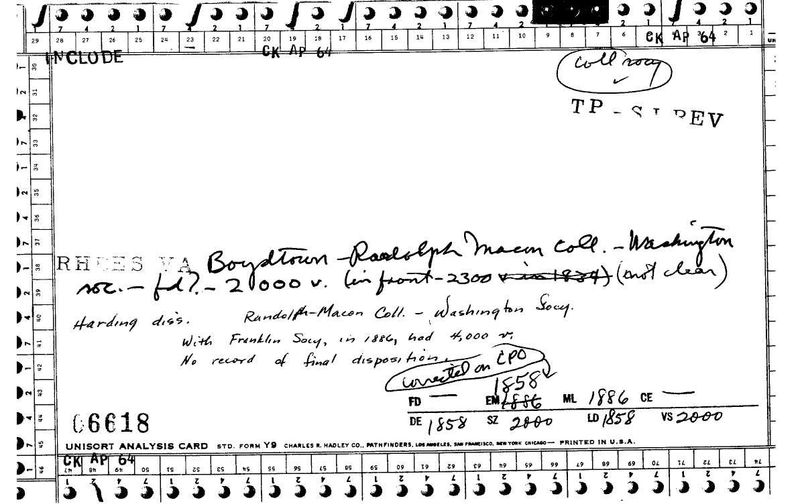 INCLUDE
CK AP 64
CK AP 64
coll socy
TP - SI REV
RHEES VA Boydtown - Radolph Macon Coll. - Washington
soc. - fd? - 2000 v. (in front - 2300 v in 1834) (not clear)
Harding diss. Randolph-Macon Coll. - Washington Socy.
With Franklin Socy, in 1886, had 4,000 v.
No record of final disposition.
corrected on CPO
1858
FD — EM 1886 ML 1886 CE —
DE 1858 SZ 2000 LD 1858 VS 2000
06618
UNISORT ANALYSIS CARD STD. FORM Y9 CHARLES R. HADLEY CO., PATHFINDERS, LOS ANGELES, SAN FRANCISCO, NEW YORK CHICAGO — PRINTED IN U.S.A.
CK AP 64